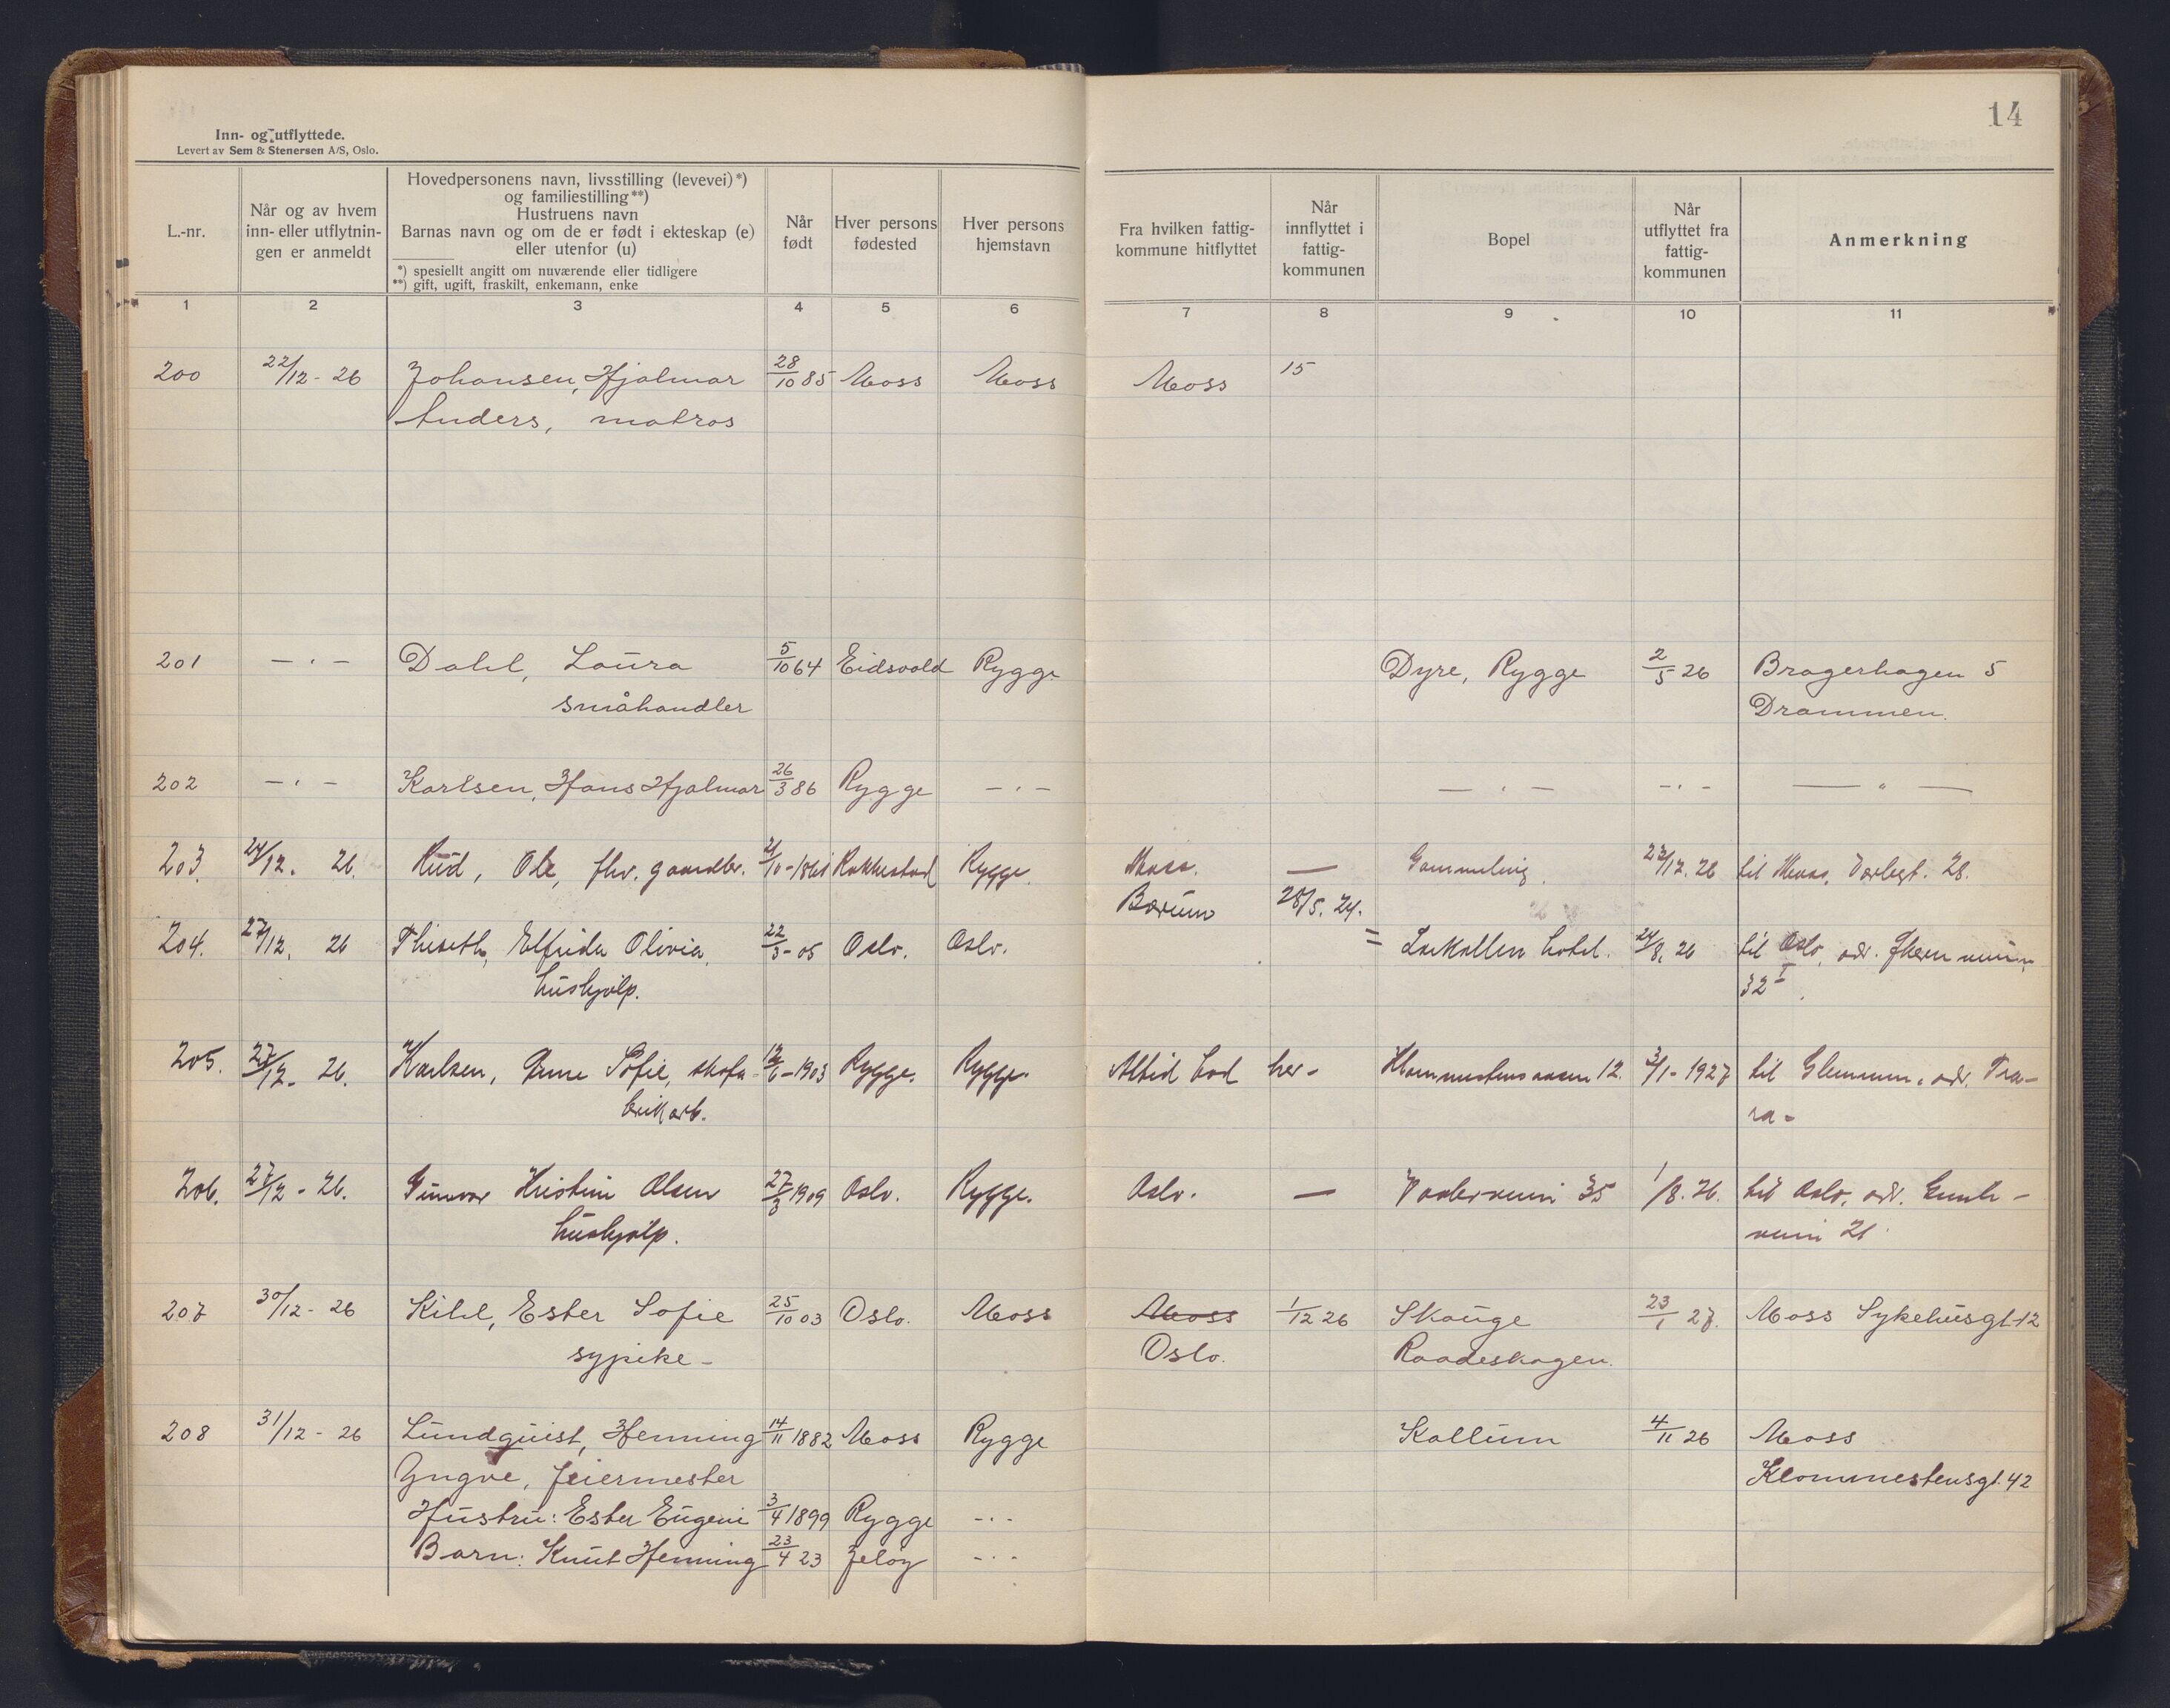 14
Inn- og utflyttede.
Levert av Sem & Stenersen A/S, Oslo.
L.-nr.
Når og av hvem
inn- eller utflytnin-
gen er anmeldt
Hovedpersonens navn, livsstilling (levevei)*)
og familiestilling**)
Hustruens navn
Barnas navn og om de er født i ekteskap (e)
eller utenfor (u)
*) spesiellt angitt om nuværende eller tidligere
**) gift, ugift, fraskilt, enkemann, enke
Når
født
Hver persons
fødested
Hver persons
hjemstavn
Fra hvilken fattig-
kommune hitflyttet
Når
innflyttet i
fattig-
kommunen
Bopel
Når
utflyttet fra
fattig-
kommunen
Anmerkning
1 2 3 4 5 6 7 8 9 10 11
200 22/12 - 26 Johansen, Hjalmar 28/10 85 Moss Moss Moss 15
Anders, matros
201 - " - Dahl, Laura 5/10 64 Eidsvold Rygge Dyre, Rygge 2/5 26 Bragerhagen 5
småhandler Drammen.
202 - " - Karlsen, Hans Hjalmar 26/3 86 Rygge - " - - " - - " - - " -
203. 24/12. 26. Rud, Ole, fhv. gaardbr. /10-1861 Rakkestad Rygge. Moss. — 22/12. 26 til Moss, 28.
Bærum 28/5. 24.
204. 27/12. 26 Thiseth, Elfrida Olivia, 22/3-05 Oslo. Oslo. = Larkollen hotel. 24/8. 26 til Oslo, adr.
hushjelp. 32 I.
205. 27/12- 26. Karlsen, Anne Sofie, skofa- 12/6-1903 Rygge. Rygge. Altid bod her- 12. 3/1-1927 til Glemmen, adr. Tra-
brikarb. ra-
206. 27/12 - 26. Gunvor Kristine Olsen 27/3 1909 Oslo. Rygge. Oslo. — 35 1/8. 26. til Oslo, adr.
hushjelp. veien 21.
207 30/12 - 26 Kihl, Ester Sofie 25/10 03 Oslo. Moss Moss 1/12 26 Skauge 23/1 27. Moss Sykehusgt. 12
sypike- Oslo. Raadeskogen.
208 31/12 - 26 Lundquist, Henning 14/11 1882 Moss Rygge Kallum 4/11 26 Moss
Yngve, feiermester Klommestensgt. 42
Hustru: Ester Eugeni 3/4 1899 Rygge - " -
Barn: Knut Henning 23/4 23 Jeløy - " -